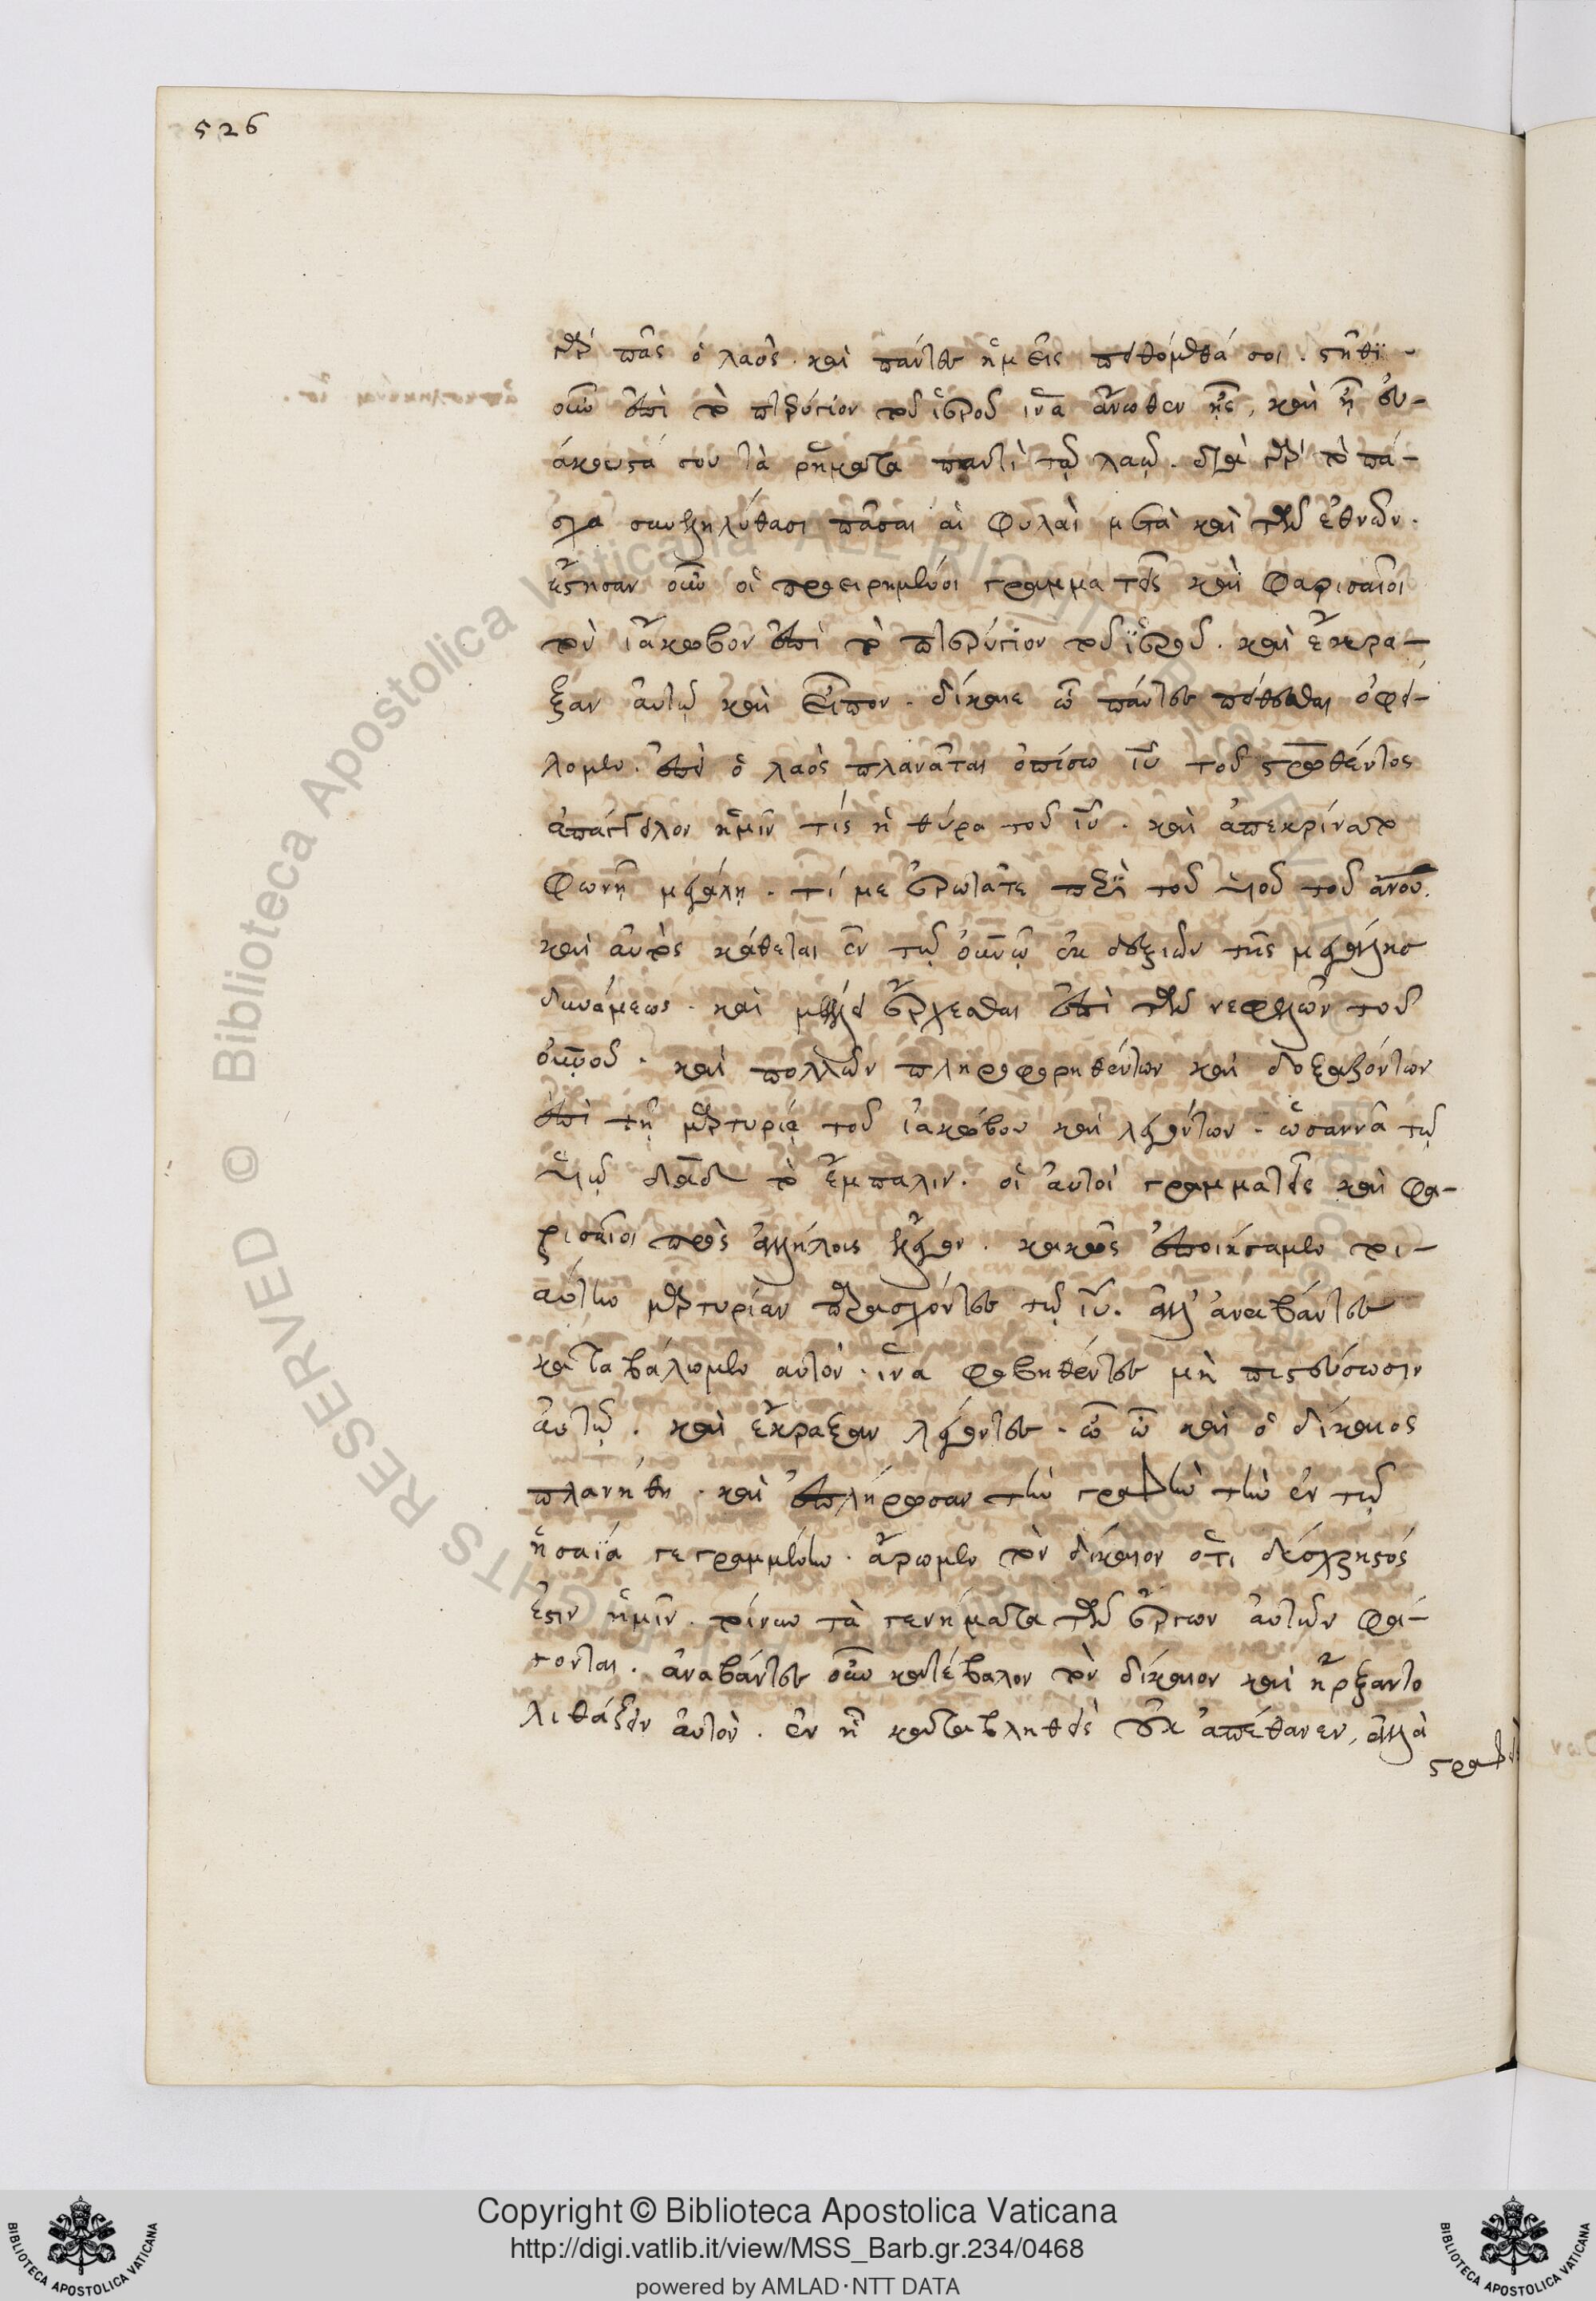 526
γὰρ πᾶς ὁ λαὸς. καὶ πάντες ἡμεῖς πειθόμεθά σοι. στῆθι
οὖν ἐπὶ τὸ πτερύγιον τοῦ ἱεροῦ ἵνα ἄνωθεν ῇς, καὶ ῇ εὐ-
άκουστά σου τὰ ῥήματα παντὶ τῷ λαῷ. διὰ γὰρ τὸ πά-
σχα συνεληλύθασι πᾶσαι αἱ φυλαὶ μετὰ καὶ τῶν ἐθνῶν.
ἔστησαν οὖν οἱ προειρημένοι γραμματεῖς καὶ φαρισαῖοι
τὸν ἰάκωβον ἐπὶ τὸ πτερύγιον τοῦ ἱεροῦ. καὶ ἔκρα-
ξαν αὐτῷ καὶ εἶπον. δίκαιε ᾧ πάντες πείθεσθαι ὀφεί-
λομεν. ἐπεὶ ὁ λαὸς πλανᾶται ὀπίσω ιυ τοῦ στρωθέντος
ἀπάγγειλον ἡμῖν τίς ἡ θύρα τοῦ ιυ. καὶ ἀπεκρίνατο
φωνῇ μεγάλῃ. τί με ἐρωτᾶτε περὶ τοῦ υἱοῦ τοῦ ανου.
καὶ αὐτὸς κάθεται ἐν τῷ ουνω ἐκ δεξιῶν τῆς μεγάλης
δυνάμεως. καὶ μέλλει ἔρχεσθαι ἐπὶ τῶν νεφελῶν τοῦ
ουνου. καὶ πολλῶν πληροφορηθέντων καὶ δοξαζόντων
ἐπὶ τῇ μαρτυρίᾳ τοῦ ἰακώβου καὶ λεγόντων. ὡσαννὰ τῷ
υἱῷ δαδ τὸ ἔμπαλιν. οἱ αὐτοὶ γραμματεῖς καὶ φα-
ρισαῖοι πρὸς ἀλλήλους ἔλεγον. κακῶς ἐποιήσαμεν τοι-
αύτην μαρτυρίαν παρασχόντες τῷ ιυ. ἀλλ' ἀναβάντες
καταβάλωμεν αὐτόν. ἵνα φοβηθέντες μὴ πιστεύσωσιν
αὐτῷ. καὶ ἔκραξαν λέγοντες. ὢ ὢ καὶ ὁ δίκαιος
πλανήθη. καὶ ἐπλήρωσαν τὴν γραφὴν τὴν ἐν τῷ
ἠσαΐᾳ γεγραμμένην. ἄρωμεν τὸν δίκαιον ὅτι δύσχρηστός
ἐστιν ἡμῖν. τοίνυν τὰ γενήματα τῶν ἔργων αὐτῶν φά-
γονται. ἀναβάντες οὖν κατέβαλον τὸν δίκαιον καὶ ἤρξαντο
λιθάζειν αὐτὸν. ἐν ᾗ καταβληθεὶς οὐκ ἀπέθανεν, ἀλλὰ
στραφεὶς
© Biblioteca Apostolica Vaticana ALL RIGHTS RESERVED
Copyright © Biblioteca Apostolica Vaticana
http://digi.vatlib.it/view/MSS_Barb.gr.234/0468
powered by AMLAD·NTT DATA
BIBLIOTECA APOSTOLICA VATICANA
BIBLIOTECA APOSTOLICA VATICANA